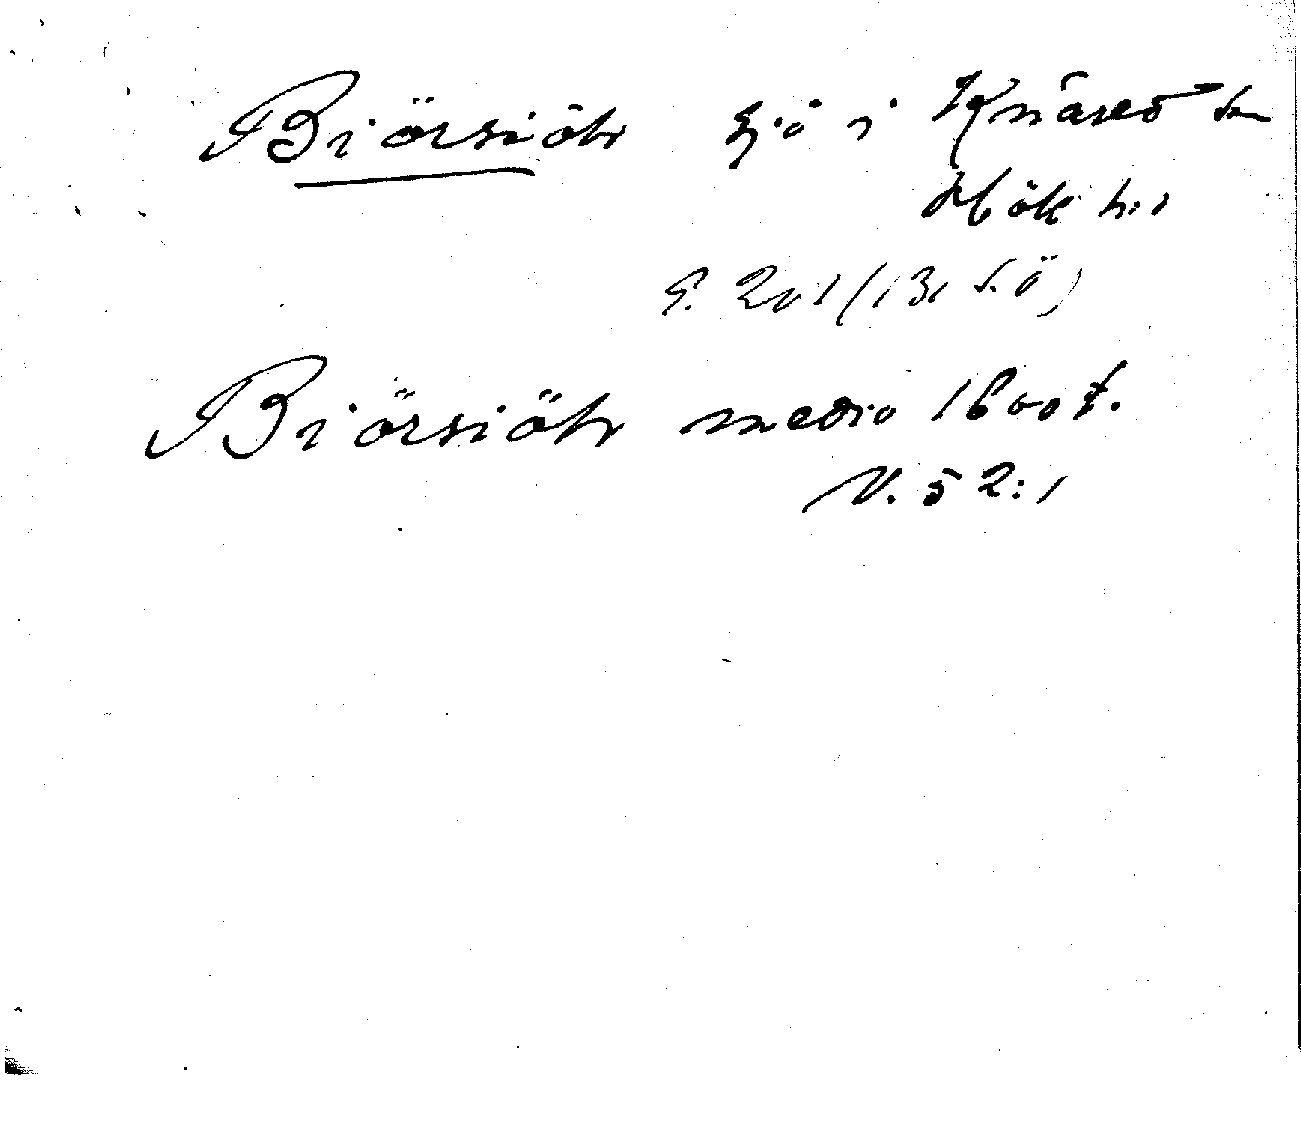 Biörsiöh sjö i Knäred sn
Hök hd
S. 201 (13. f. ö)
Biörsiöh medio 1600 t.
N. 52:1